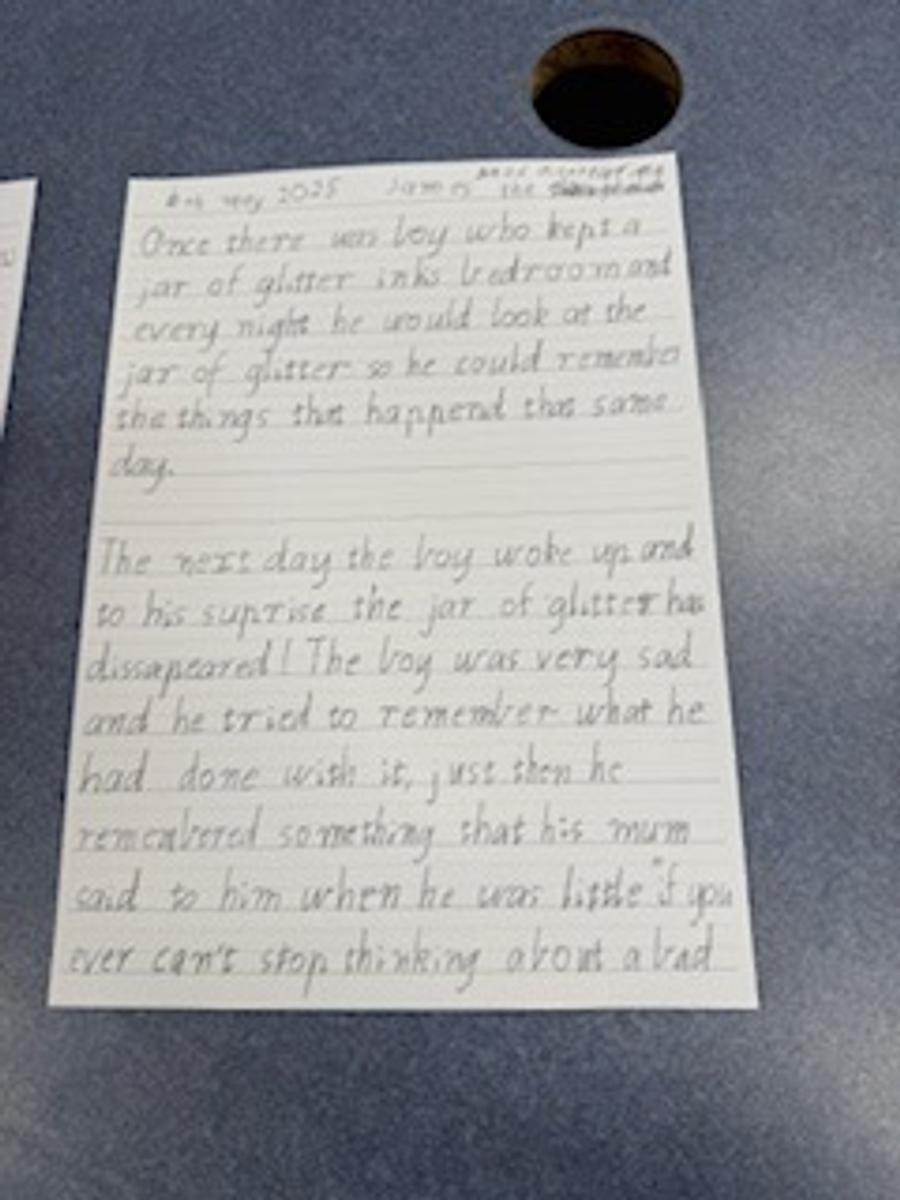 May 2025 James the
Once there was boy who kept a
jar of glitter in his bedroom and
every night he would look at the
jar of glitter so he could remember
the things that happend that same
day.
The next day the boy woke up and
to his suprise the jar of glitter has
dissapeared! The boy was very sad
and he tried to remember what he
had done with it, just then he
remembered something that his mum
said to him when he was little "if you
ever can't stop thinking about a bad